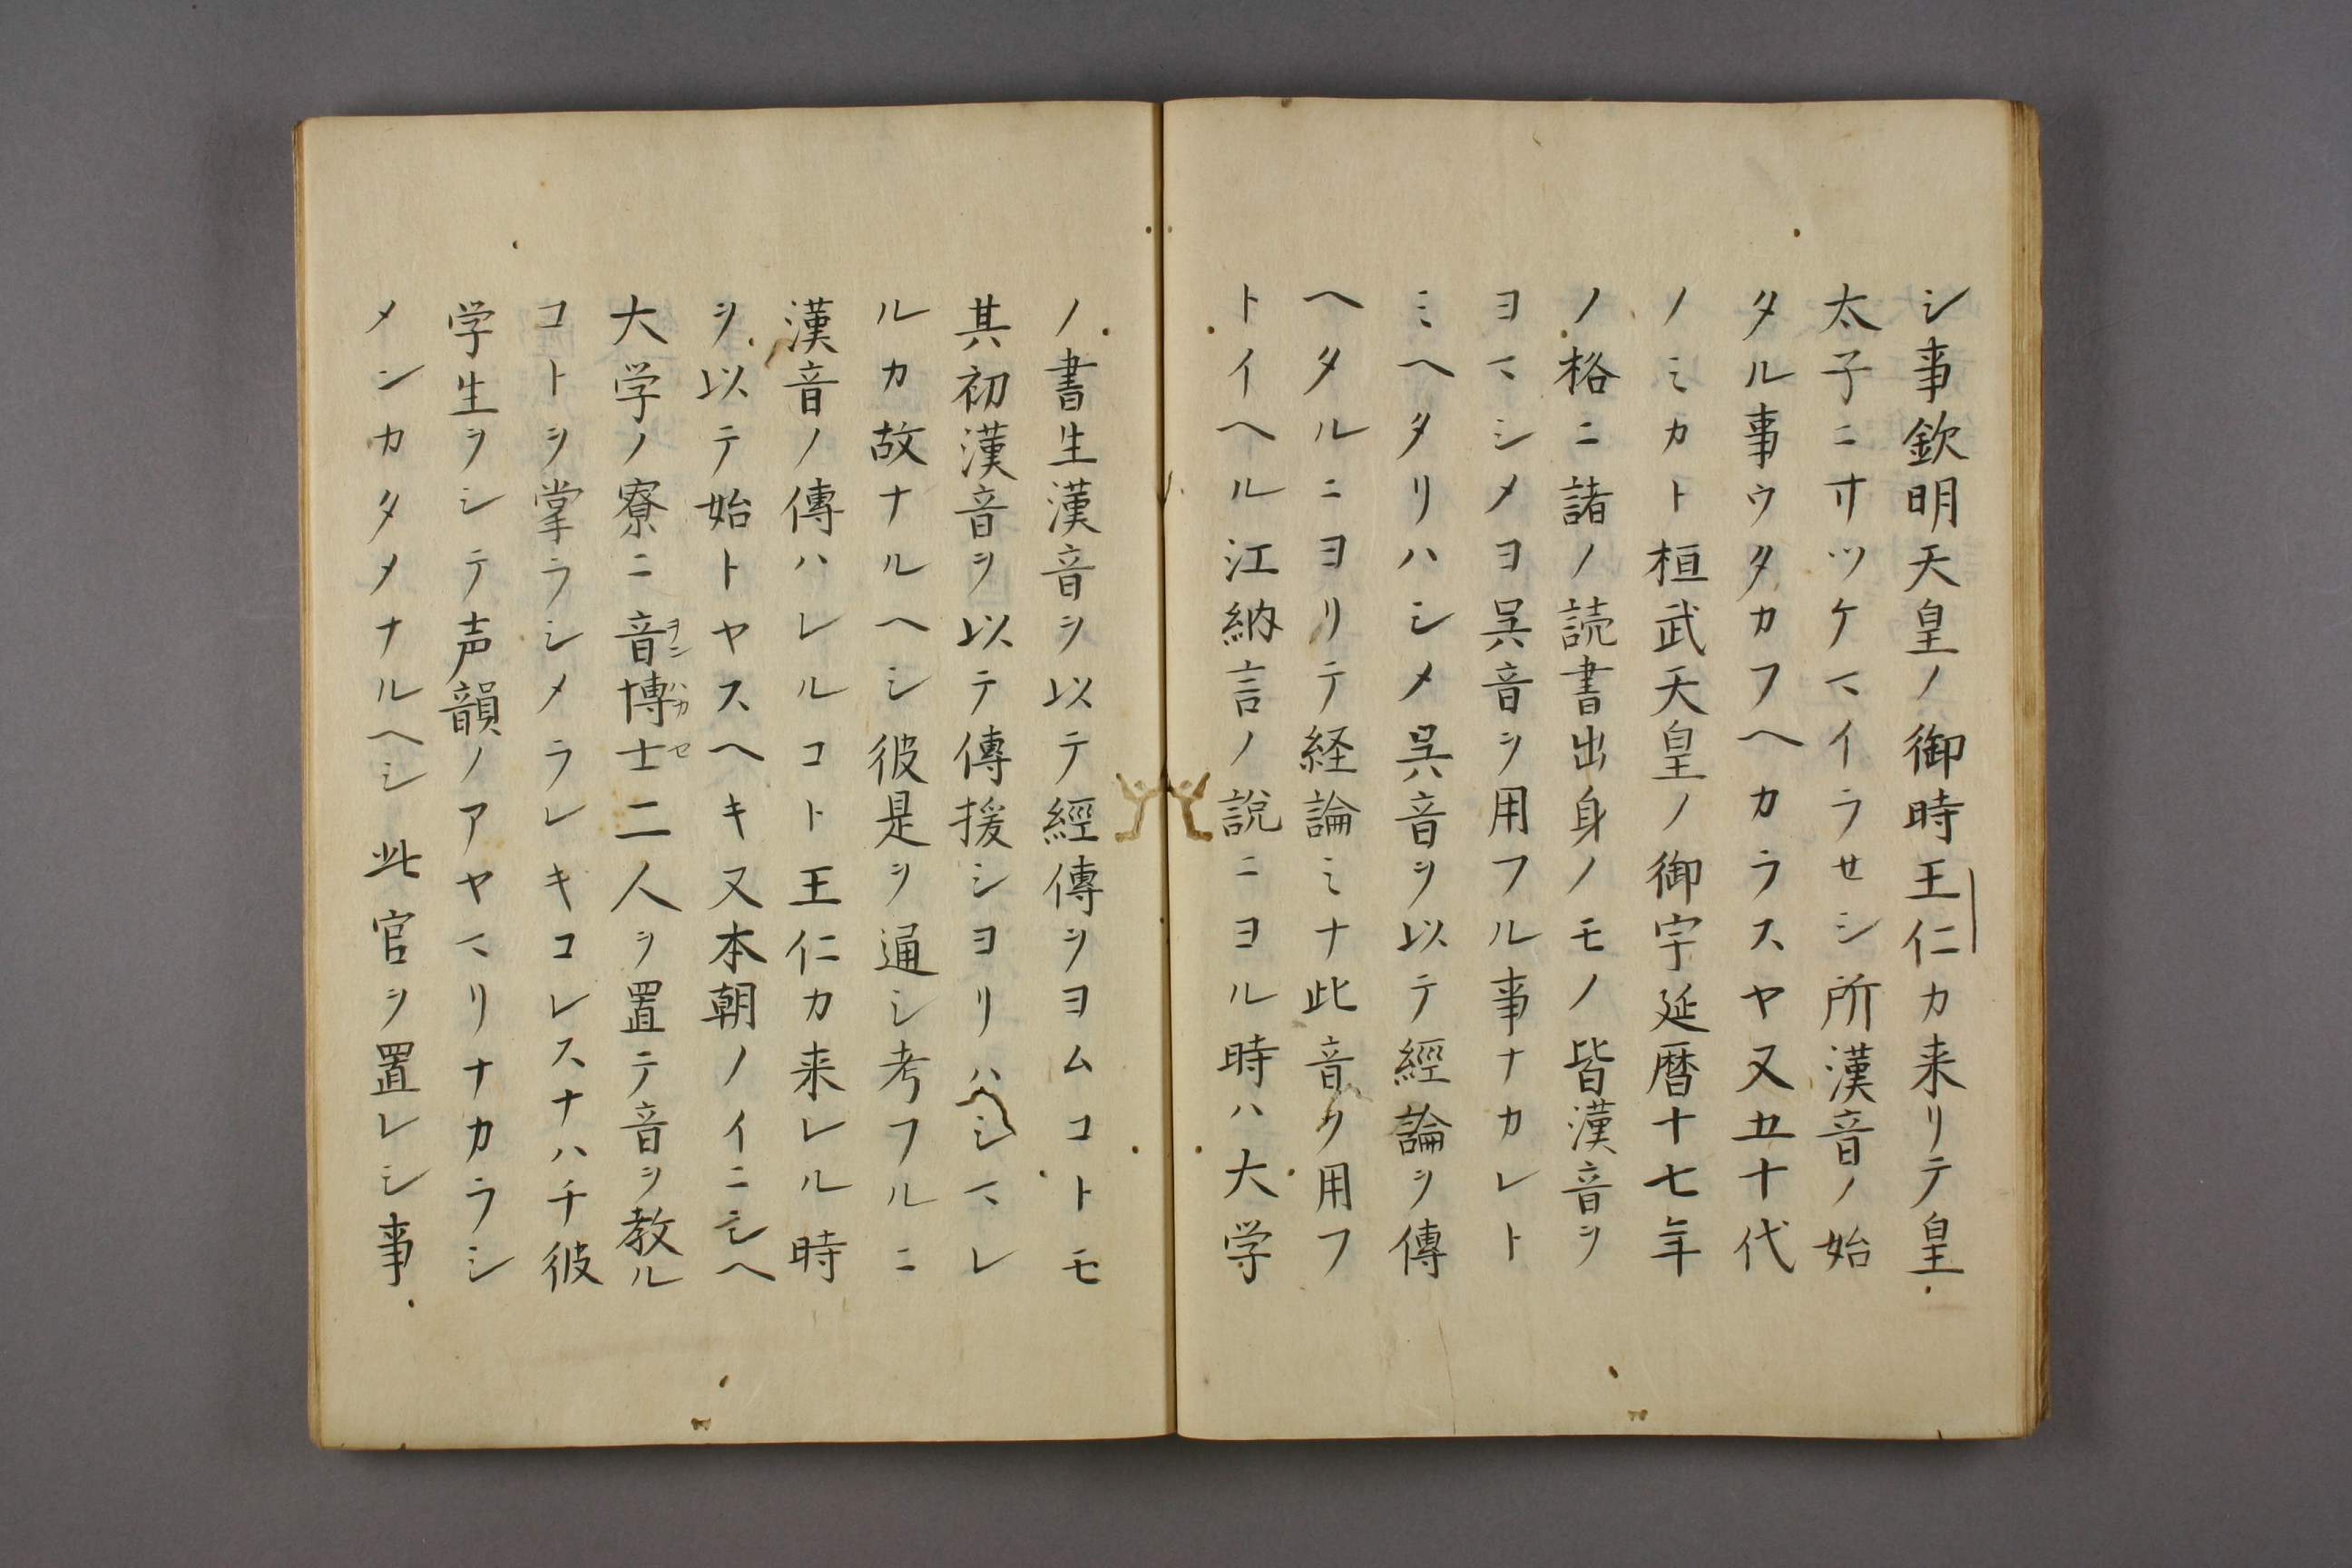 シ事欽明天皇ノ御時王仁カ来リテ皇
太子ニサツケマイラセシ所漢音ノ始
タル事ウタカフヘカラスヤ又五十代
ノミカト桓武天皇ノ御宇延暦十七年
ノ格ニ諸ノ読書出身ノモノ皆漢音ヲ
ヨマシメヨ呉音ヲ用フル事ナカレト
ミヘタリハシメ呉音ヲ以テ經論ヲ傳
ヘタルニヨリテ経論ミナ此音ヲ用フ
トイヘル江納言ノ説ニヨル時ハ大学
ノ書生漢音ヲ以テ經傳ヲヨムコトモ
其初漢音ヲ以テ傳援シヨリハシマレ
ルカ故ナルヘシ彼是ヲ通シ考フルニ
漢音ノ傳ハレルコト王仁カ来レル時
ヲ以テ始トヤスヘキ又本朝ノイニシヘ
大学ノ寮ニ音博士二人ヲ置テ音ヲ教ル
ヲンハカセ
コトヲ掌ラシメラレキコレスナハチ彼
学生ヲシテ声韻ノアヤマリナカラシ
メンカタメナルヘシ此官ヲ置レシ事